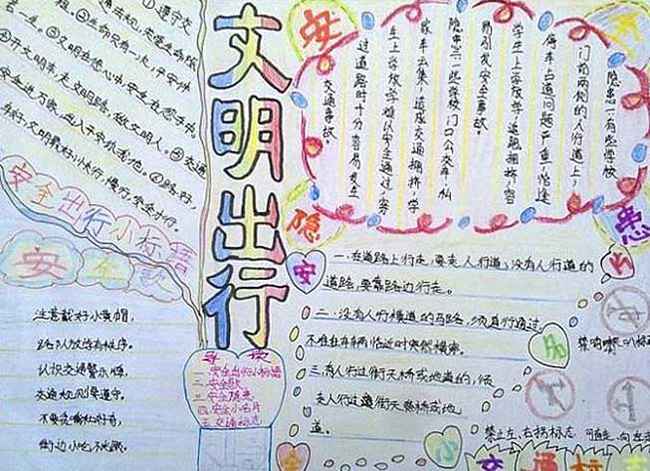 ①遵守交
生命只有一次,平安伴
君一生。③文明在您心中,安全在您手中
开文明车,走文明路,做文明人。④交通
安全进万家,出入平安
安全出行小标语
安全歌
注意戴好小黄帽,
路队放学有秩序。
认识交通警示牌,
交通规则要遵守。
文明出行
导读
一.安全出行小标语
二.安全歌
三.安全隐患
四.安全小名片
五.交通标志
安
全
隐
患
隐患一:有些学校
门前两侧的人行道上,
停车占道问题严重,给道
学生上学放学,道路拥挤,容
易引发安全事故。
隐患二:一些学校门口公交车、私
家车云集,造成交通拥挤,学
生上学放学难以安全通过,穿
过道路时十分容易发生
交通事故。
安
一.在道路上行走,要走人行道;没有人行道的
道路,要靠路边行走。
二.没有人行横道的马路,须直行通过,
不准在车辆临近时突然横穿。
三.有人行过街天桥或地道的,须
走人行过街天桥或地
道。
全
小
名
片
禁止左、右拐标志
交通标志